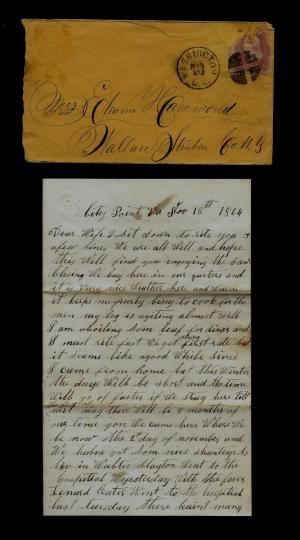 WASHINGTON
D.C.
Mrs Eleanor Hammond
Wallace Steuben Co NY
City Point Va Nov 18th 1864
Dear Wife I sit down to rite you
a few lines We are all Well and hope
this Will find you enjoying the same
blesing We lay here in our quters and
it is Vary nice Weather here and warm
it keeps me prurty bisy to cook for the
men my leg is agiting almost Well
I am aboiling som beaf for diner and
I must rite fast We get along first rate but
it seams like agood While Since
I came from home but this Winter
the days Will be short and the time
Will go of faster if We stay here till
next may there Will be 8 months of
our time gon We came here Where We
be now the 2 day of november and
We have got som nice shanteys to
liv in Slayton Went to the
hospital yesterday With the fever
Lenard Went to the hospital
last tuesday there haint many